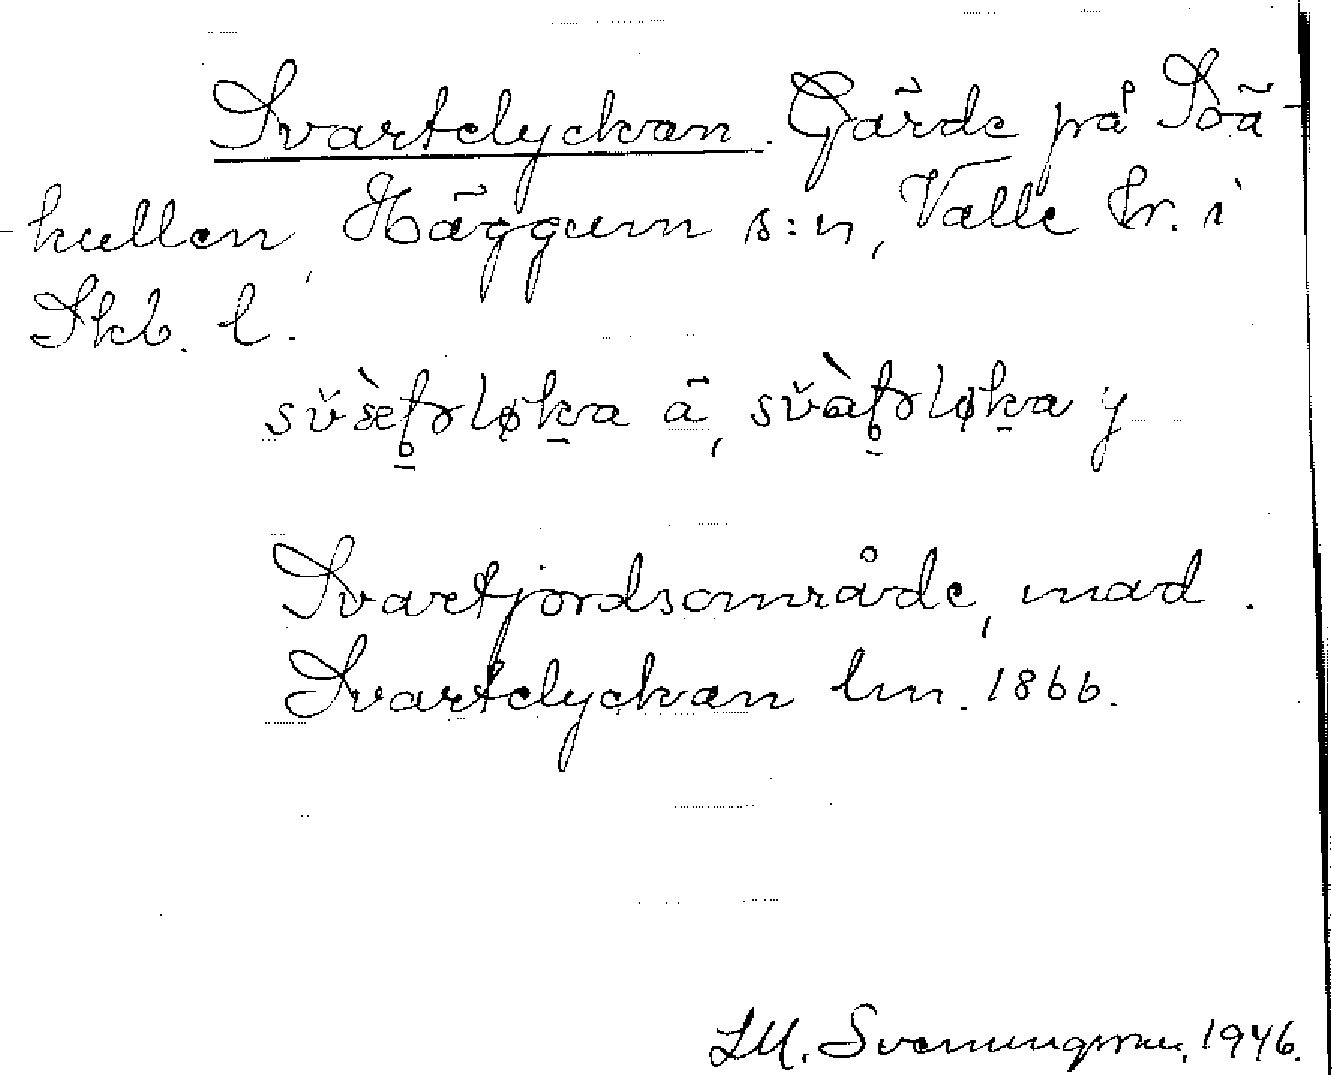 Svartelyckan. Gärde på Soä-
kullen, Häggum s:n, Valle hr. i
Skb. l.
ä, y
Svartjordsområde, mad.
Svartelyckan lm. 1866.
LM. Svenungsson, 1946.